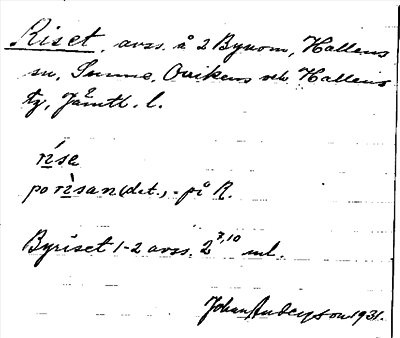 Riset, avss. å 2 Bynom, Hallens
sn, Sunne, Ovikens och Hallens
tg, Jämtl. l.
rise
po risan (det., - på R.
Byriset 1-2 avss. 2 7,10 ml.
Johan Anderson 1931.